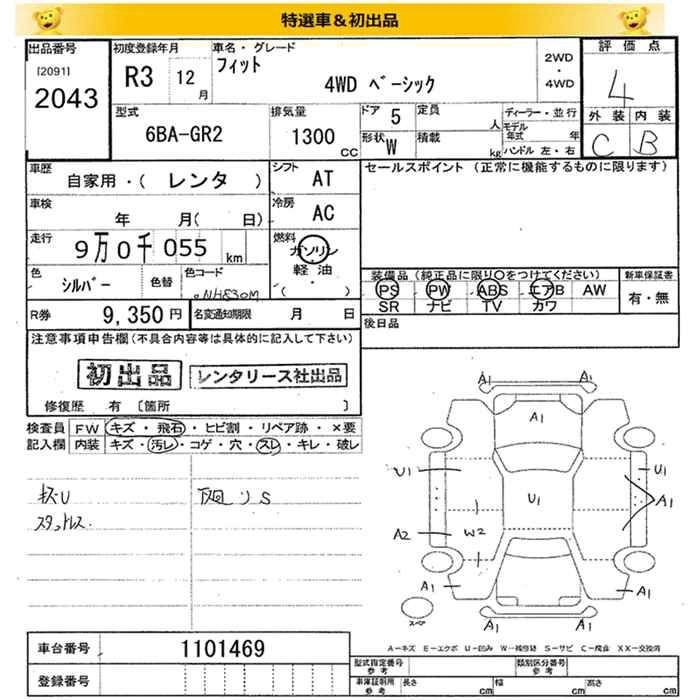 特選車＆初出品
出品番号 初度登録年月 車名・グレード 2WD・4WD 評価点
[2091] R3 12月 フィット 4
2043 4WD ベーシック
型式 排気量 ドア 5 定員 人 ディーラー・並行 外装 内装
6BA-GR2 1300CC モデル年式 年
形状 W 積載 kg ハンドル 左・右 C B
車歴 シフト セールスポイント (正常に機能するものに限ります)
自家用・( レンタ ) AT
車検 年 月( 日) 冷房 AC
走行 9万0千055km 燃料 ガソリン・軽油・( )
色 シルバー 色替 色コード NH830M
装備品 (純正品に限り○をつけてください) 新車保証書
PS PW ABS エアB AW 有・無
SR ナビ TV カワ
R券 9,350円 名変通知期限 月 日
後日品
注意事項申告欄 (不具合内容等は具体的に記入して下さい)
初出品 レンタリース社出品
修復歴 有 〔箇所 〕
検査員 FW キズ・飛石・ヒビ割・リペア跡・×要
記入欄 内装 キズ・汚レ・コゲ・穴・スレ・キレ・破レ
キズU 下廻りS
スタットレス
A1 A1
A1
U1 U1 U1 A1
A2 W2
A1 A1
A1 A1
スペア
A－キズ E－エクボ U－凹み W－補修跡 S－サビ C－腐食 XX－交換済
車台番号 1101469
型式指定番号 参考 類別区分番号 参考
登録番号
車庫証明用 参考 長さ cm 幅 cm 高さ cm